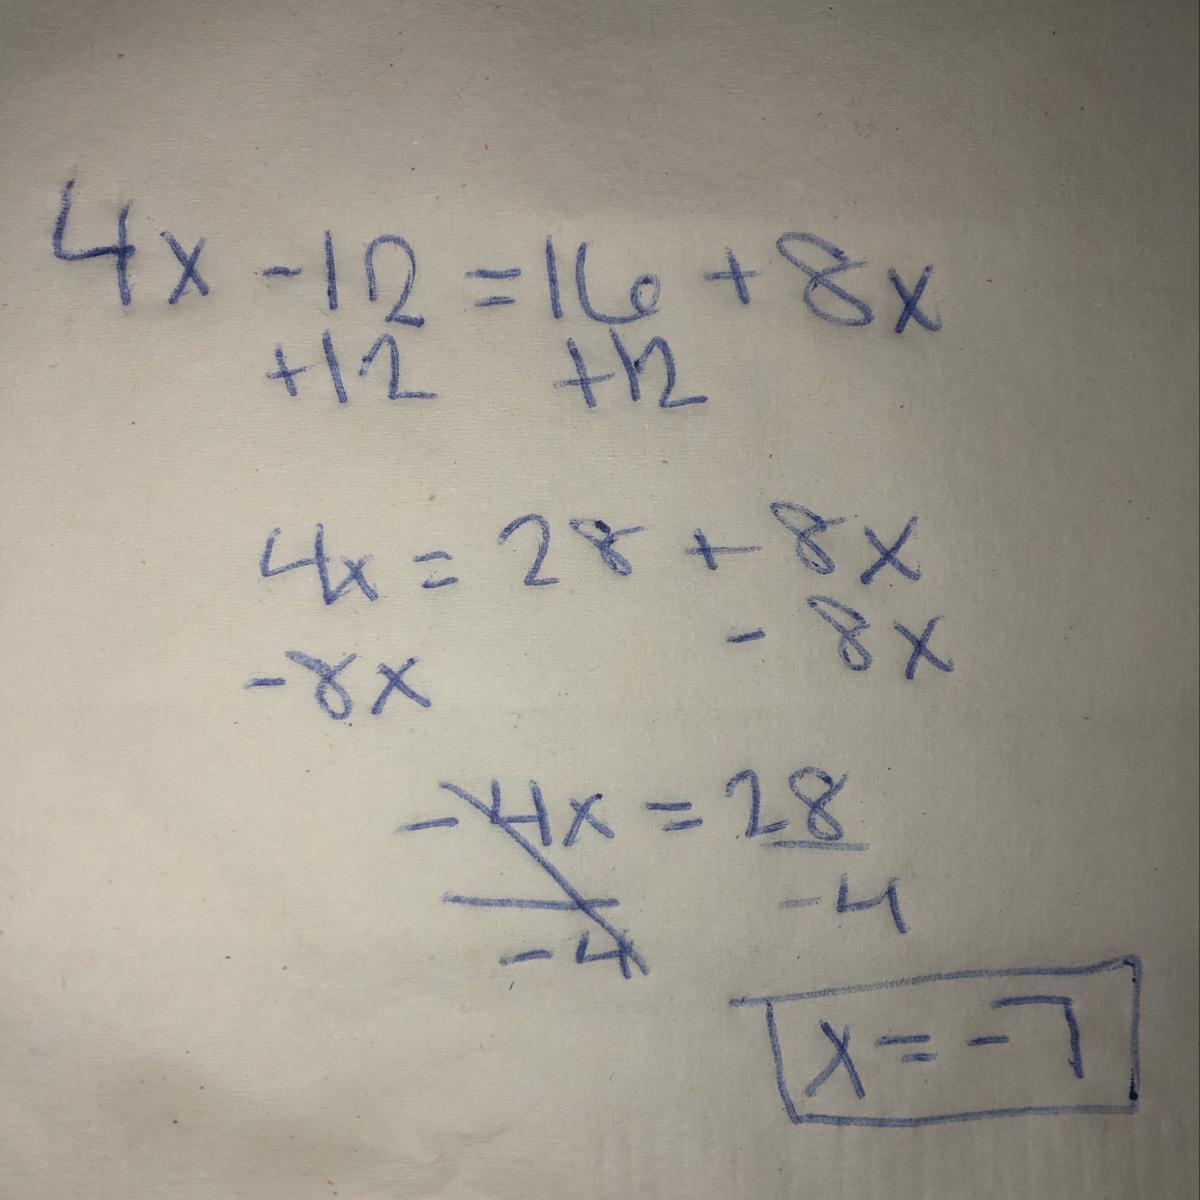 4x -12 = 16 + 8x
+12 +12
4x = 28 + 8x
-8x - 8x
-4x = 28
-4 -4
x = -7